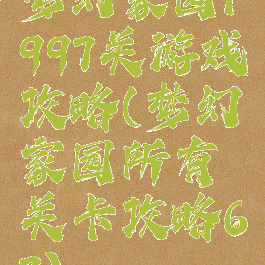 梦幻家园1
997关游戏
攻略(梦幻
家园所有
关卡攻略6